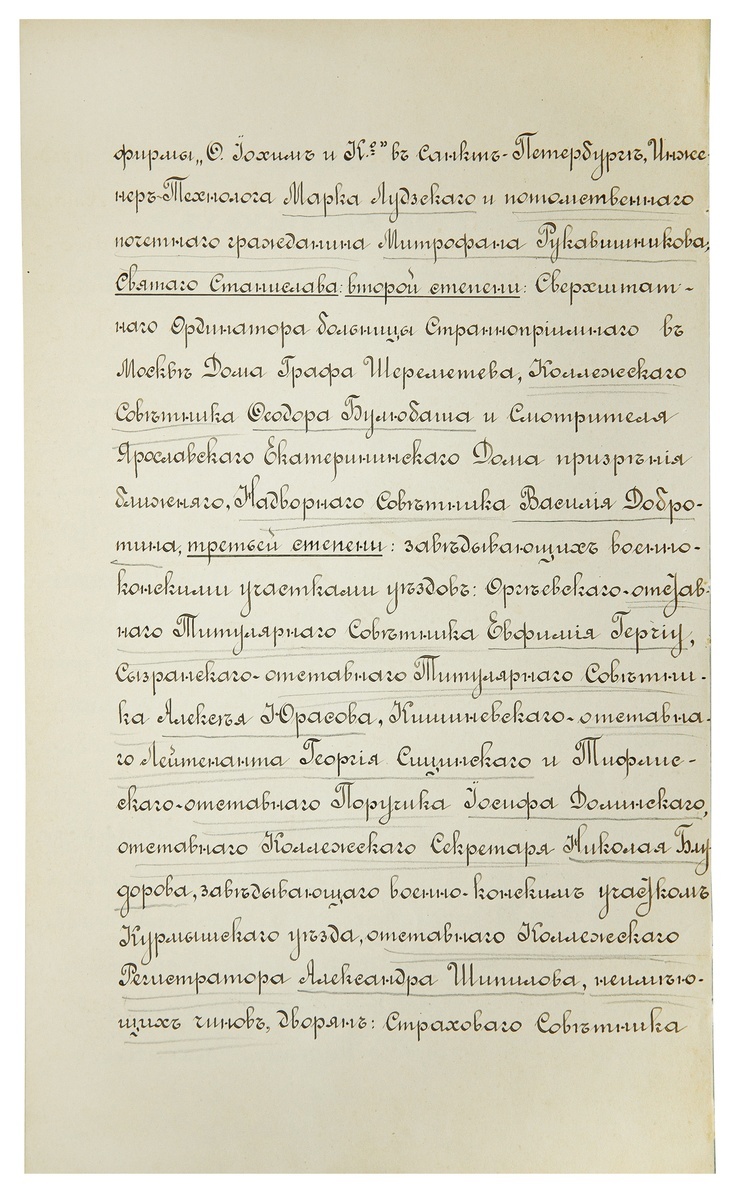 фирмы „О. Іохимъ и К.º" въ Санктъ-Петербургѣ, Инже-
неръ-Технолога Марка Лудзскаго и потомственнаго
почетнаго гражданина Митрофана Рукавишникова;
Святаго Станислава: второй степени: Сверхштат-
наго Ординатора больницы Страннопріимнаго въ
Москвѣ Дома Графа Шереметева, Коллежскаго
Совѣтника Ѳеодора Булюбаша и Смотрителя
Ярославскаго Екатерининскаго Дома призрѣнія
ближняго, Надворнаго Совѣтника Василія Добро-
тина, третьей степени: завѣдывающихъ военно-
конскими участками уѣздовъ: Оргѣевскаго-отстав-
наго Титулярнаго Совѣтника Евфимія Герчіу,
Сызранскаго-отставнаго Титулярнаго Совѣтни-
ка Алексѣя Юрасова, Кишиневскаго-отставна-
го Лейтенанта Георгія Сицинскаго и Тифлис-
скаго-отставнаго Поручика Іосифа Долинскаго,
отставнаго Коллежскаго Секретаря Николая Блу-
дорова, завѣдывающаго военно-конскимъ участкомъ
Курмышскаго уѣзда, отставнаго Коллежскаго
Регистратора Александра Шипилова, неимѣю-
щихъ чиновъ, дворянъ: Страховаго Совѣтника